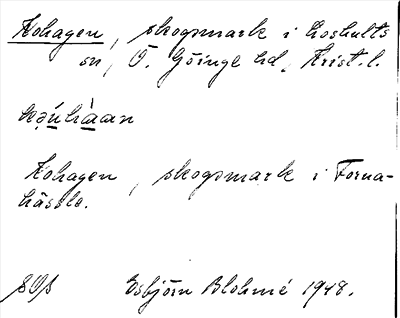 Kohagen, skogsmark i Loshults
sn, Ö. Göinge hd, Krist. l.
Kohagen, skogsmark i Forna-
hässle.
Esbjörn Blohmé 1948.